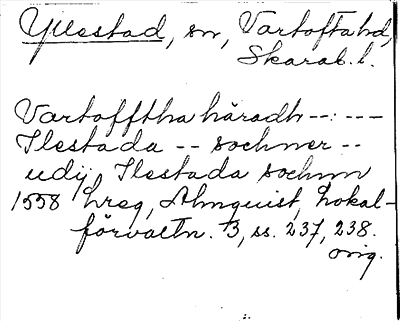 Yllestad, sn, Vartofta hd,
Skarab. l.
Vartofftha häradh --:---
Ilestada -- sochner --
udij Ilestada sochnn
1558 Lreg, Almquist, Lokal-
förvaltn. 3, ss. 237, 238.
orig.